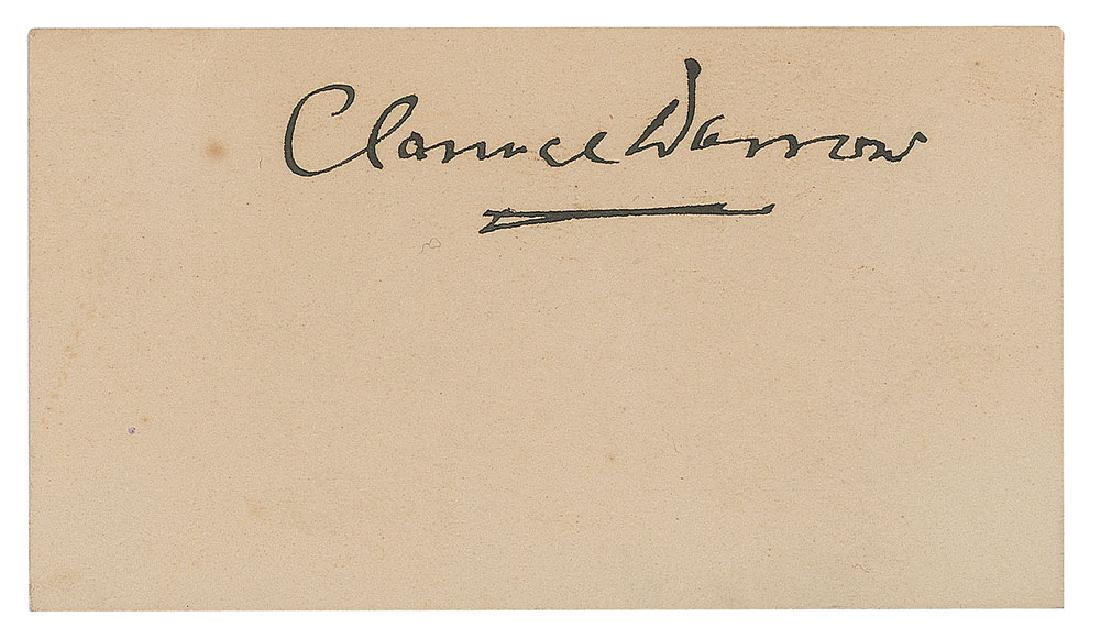 Clarence Darrow